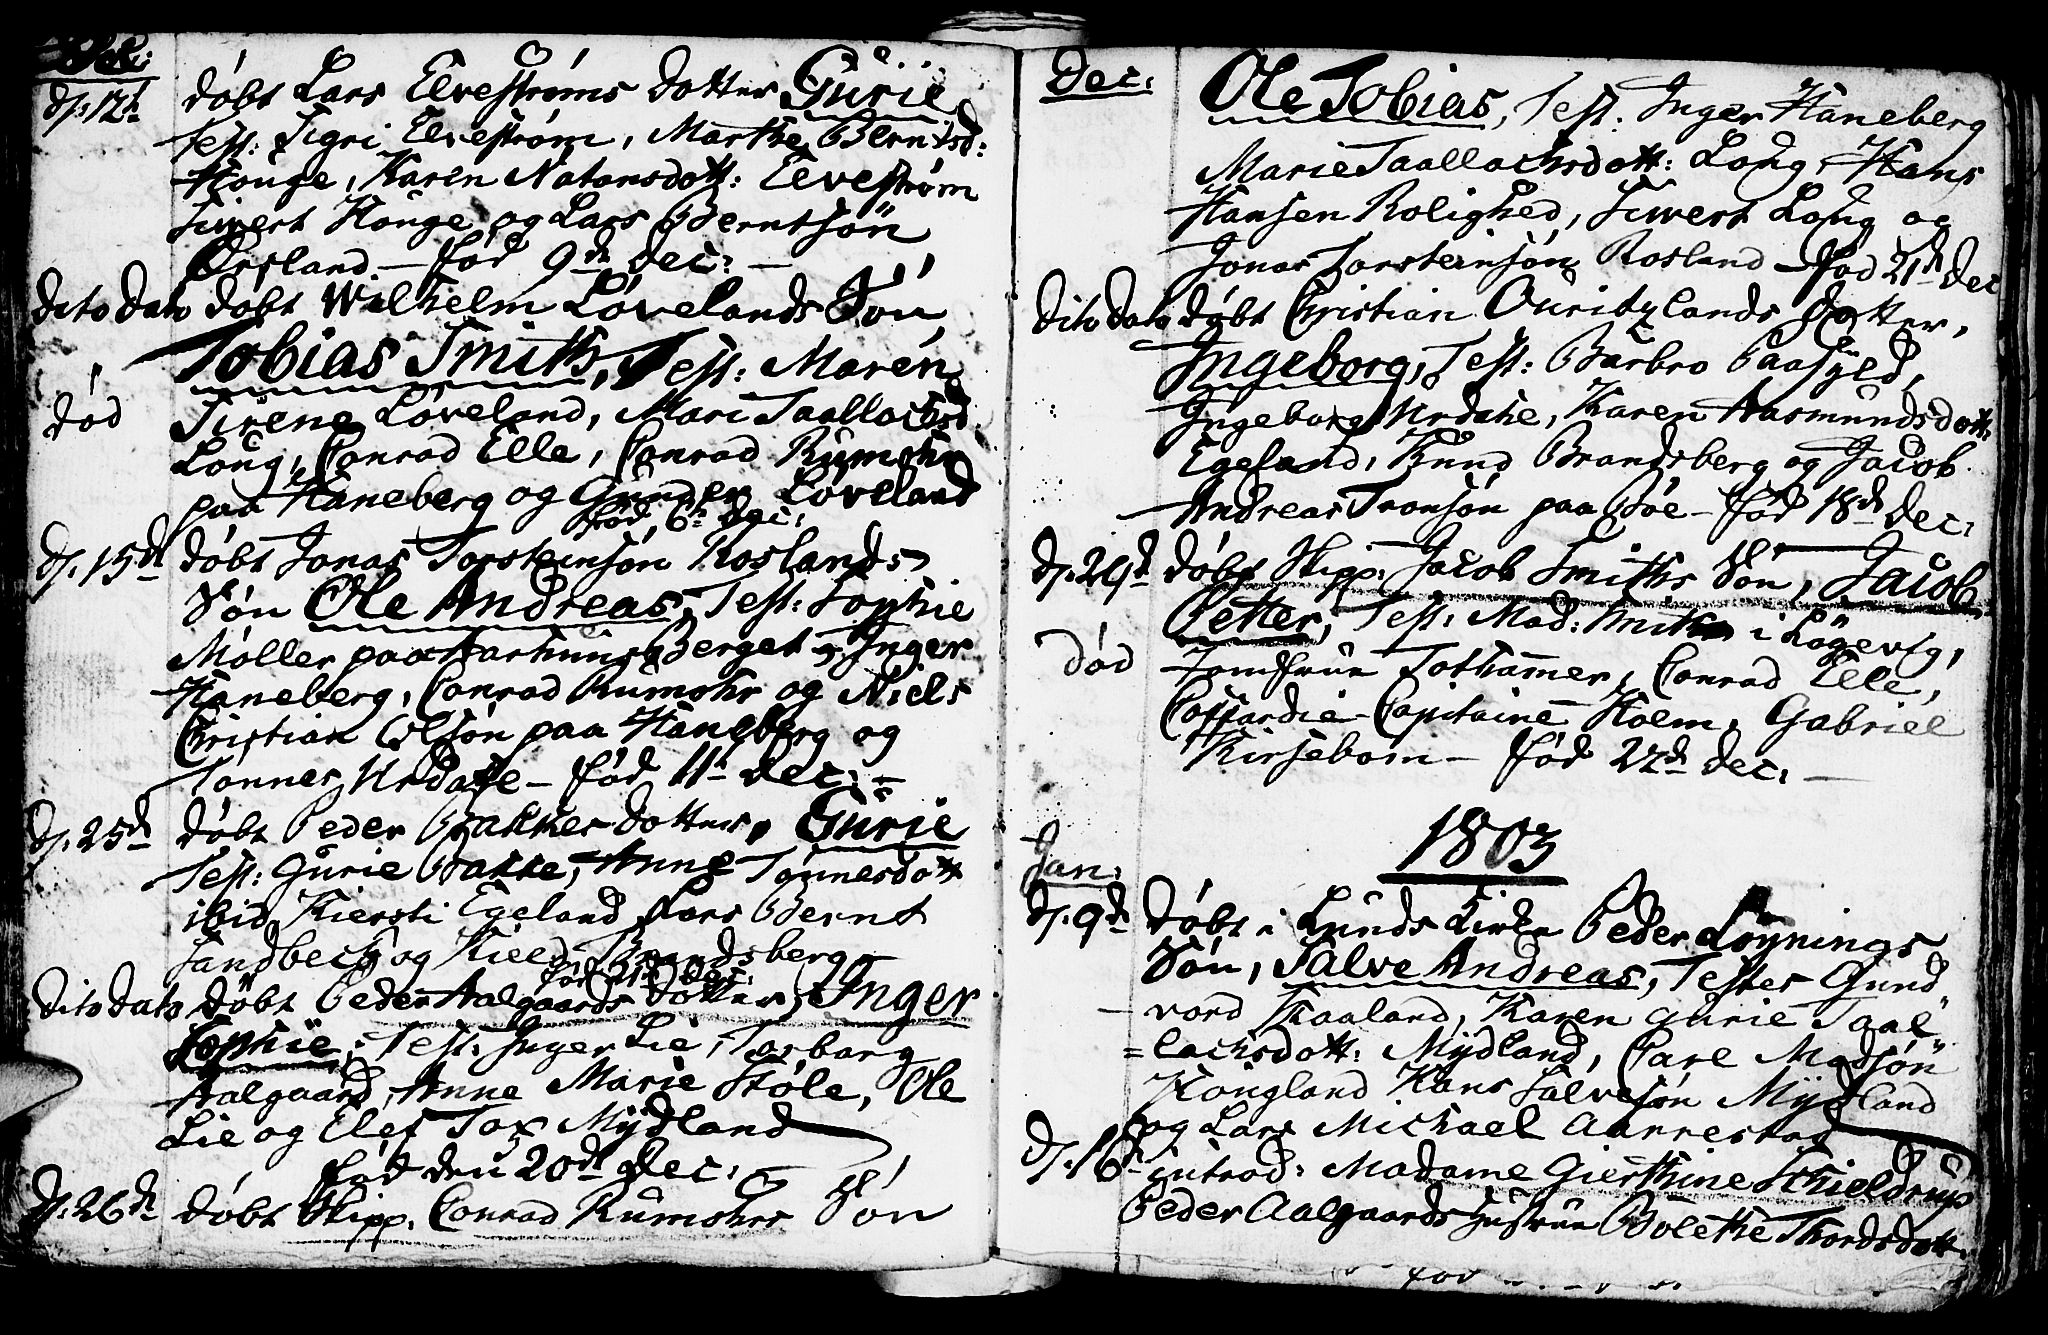 Dec:
d. 12t døbt Lars Elvestrøms Dotter Gurie
Test: Sigri Elvestrøm, Marthe Berntsd:
Houge, Karen Natansdott: Elvestrøm
Siwert Houge og Lars Berntsøn
Orsland. — fød 9de Dec: —
Dito Dato døbt Wilhelm Lòvelands Søn
Tobias Smith, Test: Maren
død Sirene Lòveland, Mari Taallachsd
Long, Conrad Elle, Conrad Rumohr
paa Haneberg og Gunder Lòveland
fød 6te Dec:
d. 15de døbt Jonas Torsteinsøn Roslands
Søn Ole Andreas, Test: Sophie
Møller paa Berget, Inger
Haneberg, Conrad Rumohr og Niels
Christian Olsøn paa Haneberg og
Tønnes Urdahe — fød 11te Dec: —
d. 25de døbt Peder Bakkes Dotter, Gurie
Test: Gurie Bakke, Anne Tønnesdott
ibid, Kiersti Egeland, Lars Bernt
Sandbech og Kield Brandsberg
fød 21de Dec:
Dito Dato døbt Peder Aalgaards Dotter, Inger
Sophie, Test: Inger Lie, Torborg
Aalgaard, Anne Marie Støle, Ole
Lie og Elef Tox Mydland
fød den 20de Dec:
d. 26de døbt Skipp. Conrad Rumohrs Søn
Dec:
Ole Tobias, Test: Inger Haneberg
Marie Taallachsdott: Long, Hans
Hansen Rolighed, Siwert Long og
Jonas Torsteinsøn Rosland — fød 21de Dec
Dito Dato døbt Christian Ouritzlands Dotter,
Ingeborg, Test: Barbro Paasyld,
Ingeborg Urdahe, Karen Aasmundsdott:
Egeland, Knud Brandsberg og Jacob
Andreas Tronsøn paa Bøe — fød 18de Dec:
d. 29de døbt Skipp: Jacob Smiths Søn, Jacob
Petter, Test: Mad: Smith i Løgevig,
død Jomfrue Tothammer, Conrad Elle,
Coffardie Capitaine Holm, Gabriel
Kirsebom — fød 22de Dec: —
1803
Jan:
d. 9de døbt i Lunds Kirke Peder Løynings
Søn, Salve Andreas, Testes Gund
vord Skaaland, Karen Gurie Taal"
=lachsdott: Mydland, Carl Madsøn
Hougland Hans Salvesøn Mydland
og Lars Michael Aarrestad
d. 16de introd: Madame Gierthine Schieldrup
Peder Aalgaards hustrue Bolethe Thordsdott.